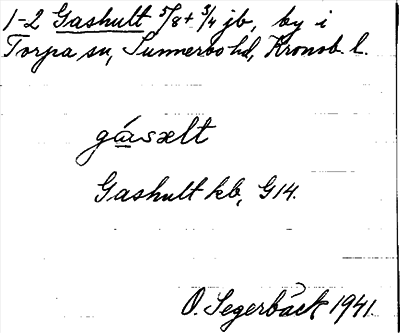 1-2 Gashult 5/8 + 3/4 jb, by i
Torpa sn, Sunnerbo hd, Kronob. l.
gásælt
Gashult kb, G14.
O. Segerbäck 1941.